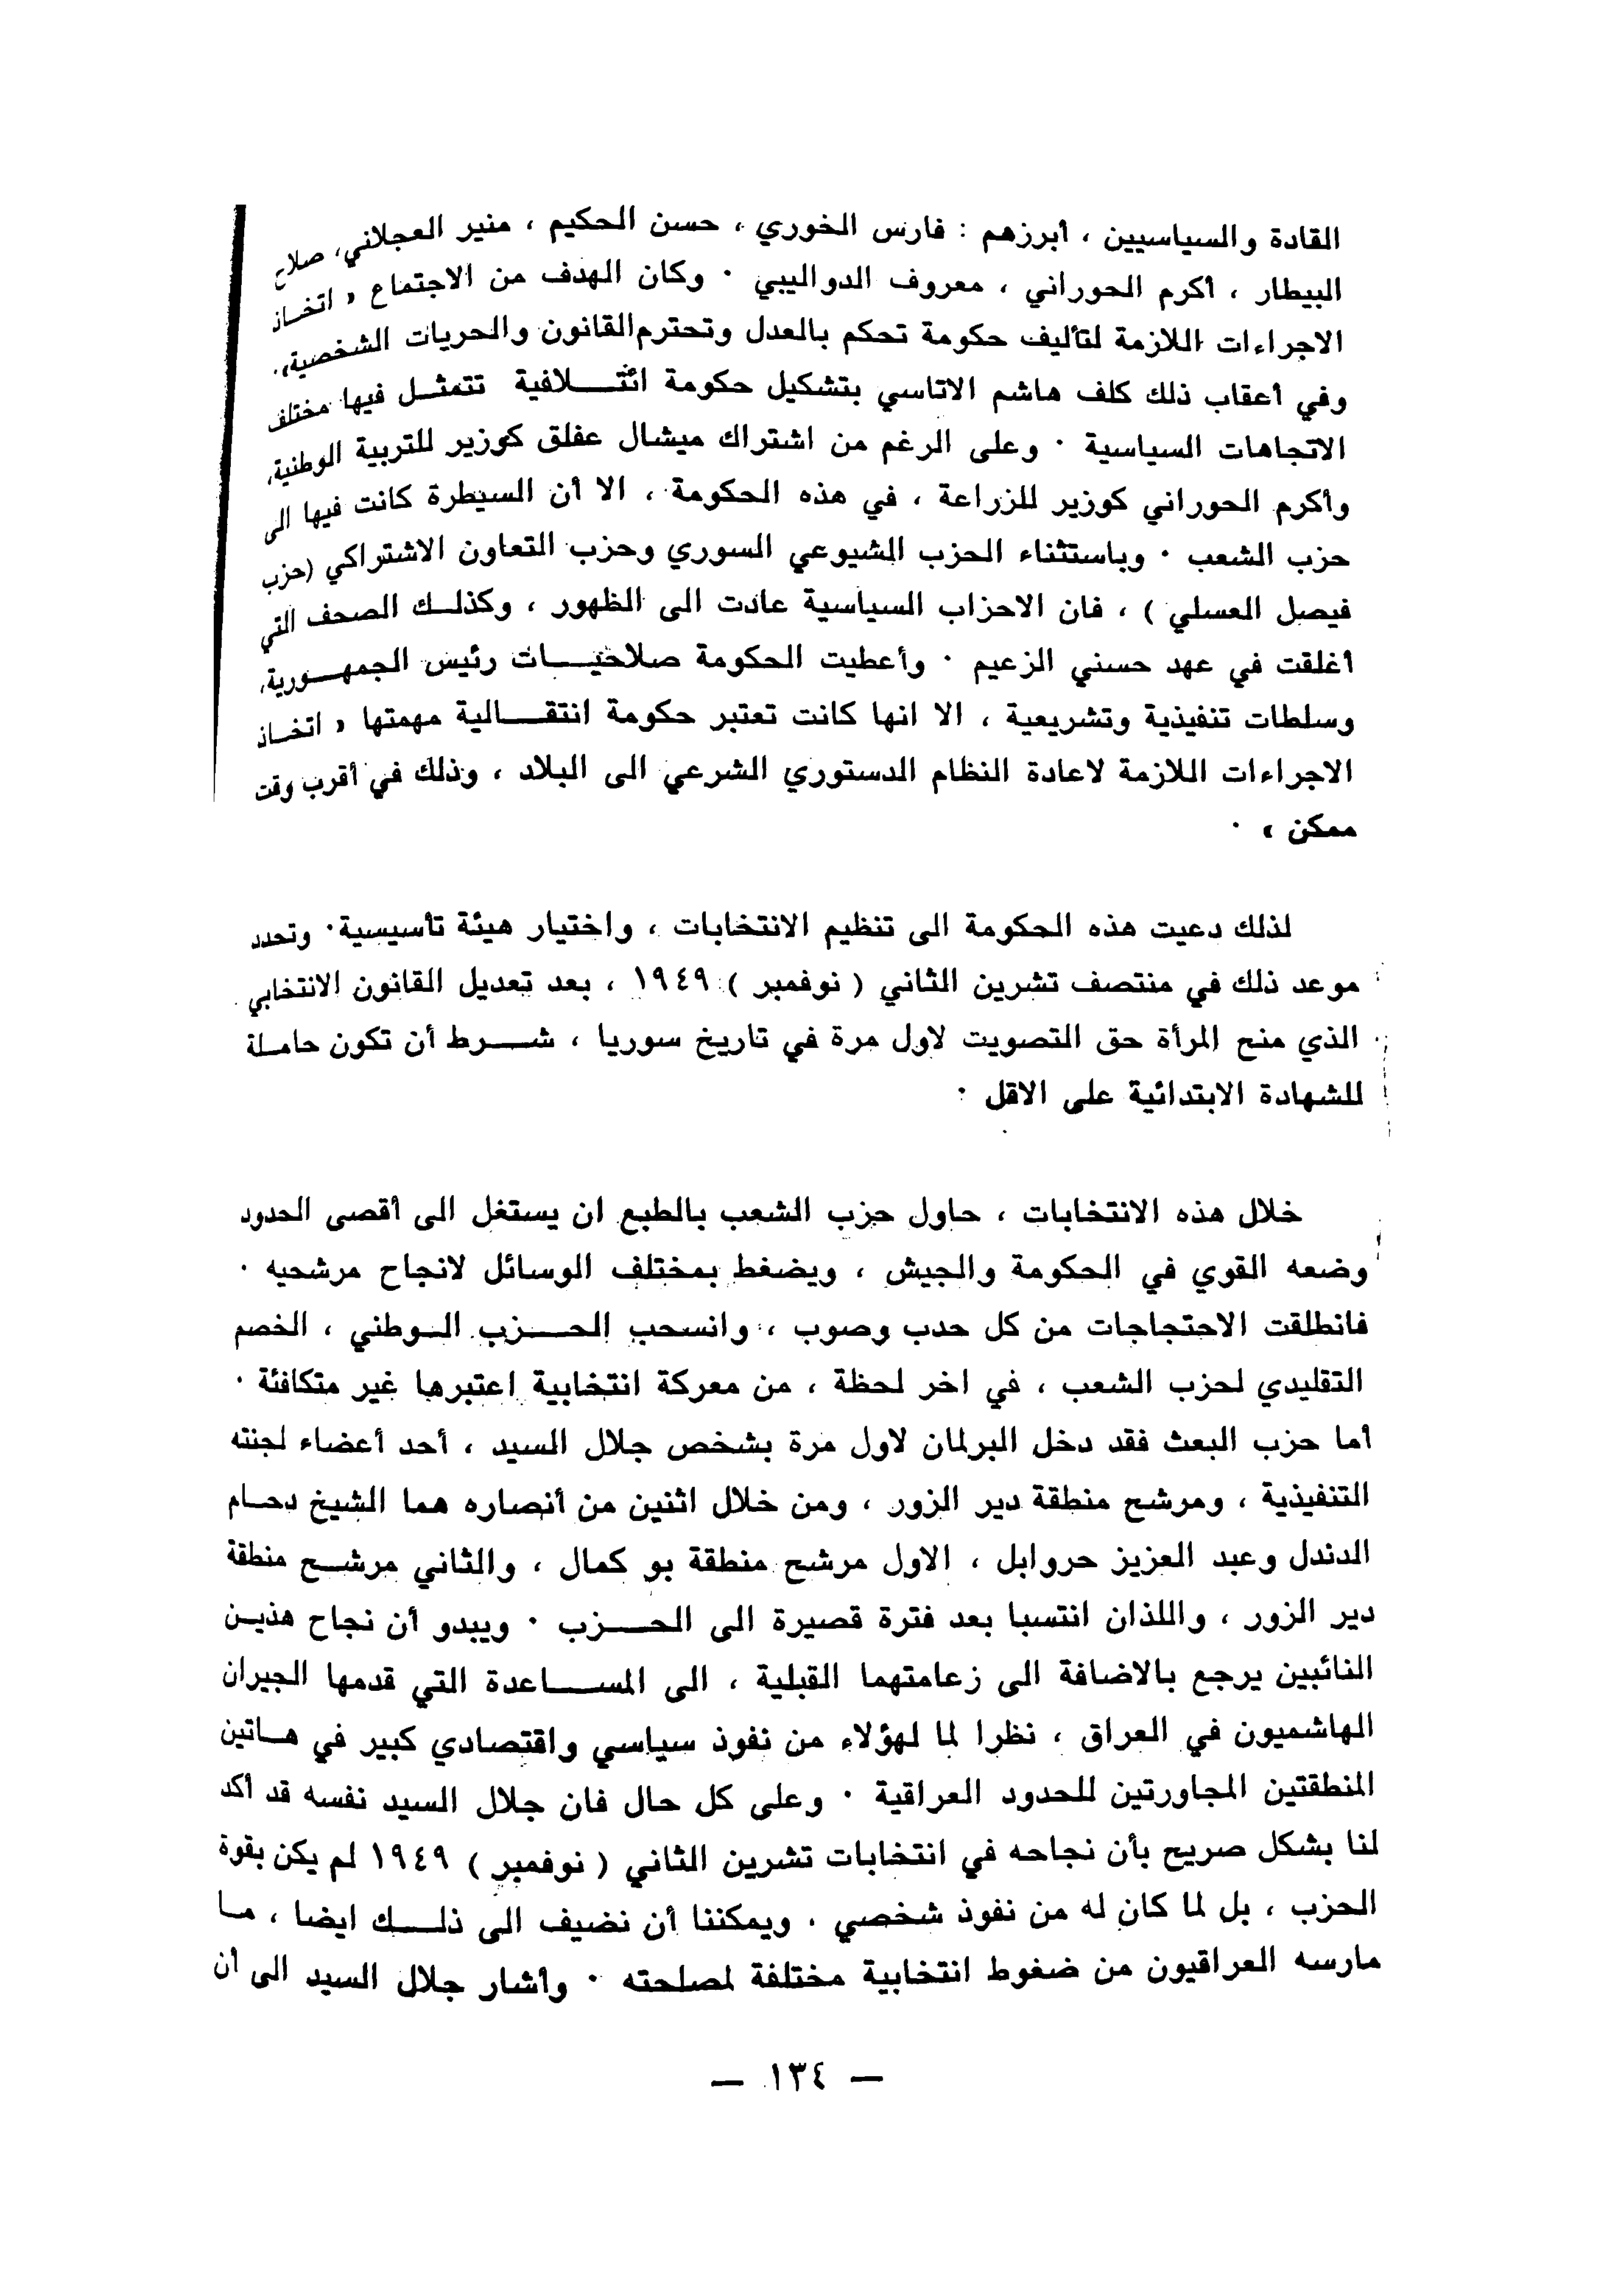 القادة والسياسيين ، أبرزهم : فارس الخوري ، حسن الحكيم ، منير العجلاني، صلاح
البيطار ، أكرم الحوراني ، معروف الدواليبي ٠ وكان الهدف من الاجتماع « اتخـاذ
الاجراءات اللازمة لتأليف حكومة تحكم بالعدل وتحترم القانون والحريات الشخصية».
وفي أعقاب ذلك كلف هاشم الاتاسي بتشكيل حكومة ائتـــلافية تتمثـل فيها مختلف
الاتجاهات السياسية ٠ وعلى الرغم من اشتراك ميشال عفلق كوزير للتربية الوطنية،
وأكرم الحوراني كوزير للزراعة ، في هذه الحكومة ، الا أن السيطرة كانت فيها الى
حزب الشعب ٠ وباستثناء الحزب الشيوعي السوري وحزب التعاون الاشتراكي (حزب
فيصل العسلي ) ، فان الاحزاب السياسية عادت الى الظهور ، وكذلـك الصحف التي
أغلقت في عهد حسني الزعيم ٠ وأعطيت الحكومة صلاحيـــات رئيس الجمهـورية،
وسلطات تنفيذية وتشريعية ، الا انها كانت تعتبر حكومة انتقـــالية مهمتها « اتخـاذ
الاجراءات اللازمة لاعادة النظام الدستوري الشرعي الى البلاد ، وذلك في أقرب وقت
ممكن » ٠
لذلك دعيت هذه الحكومة الى تنظيم الانتخابات ، واختيار هيئة تأسيسية٠ وتحدد
موعد ذلك في منتصف تشرين الثاني ( نوفمبر ) ١٩٤٩ ، بعد تعديل القانون الانتخابي
الذي منح المرأة حق التصويت لاول مرة في تاريخ سوريا ، شـــرط أن تكون حاملة
للشهادة الابتدائية على الاقل ٠
خلال هذه الانتخابات ، حاول حزب الشعب بالطبع ان يستغل الى أقصى الحدود
وضعه القوي في الحكومة والجيش ، ويضغط بمختلف الوسائل لانجاح مرشحيه ٠
فانطلقت الاحتجاجات من كل حدب وصوب ، وانسحب الحـــزب الـوطني ، الخصم
التقليدي لحزب الشعب ، في اخر لحظة ، من معركة انتخابية اعتبرها غير متكافئة ٠
أما حزب البعث فقد دخل البرلمان لاول مرة بشخص جلال السيد ، أحد أعضاء لجنته
التنفيذية ، ومرشح منطقة دير الزور ، ومن خلال اثنين من أنصاره هما الشيخ دحـام
الدندل وعبد العزيز حروابل ، الاول مرشح منطقة بو كمال ، والثاني مرشـح منطقة
دير الزور ، واللذان انتسبا بعد فترة قصيرة الى الحـــزب ٠ ويبدو أن نجاح هذيـن
النائبين يرجع بالاضافة الى زعامتهما القبلية ، الى المســـاعدة التي قدمها الجيران
الهاشميون في العراق ، نظرا لما لهؤلاء من نفوذ سياسي واقتصادي كبير في هـاتين
المنطقتين المجاورتين للحدود العراقية ٠ وعلى كل حال فان جلال السيد نفسه قد أكد
لنا بشكل صريح بأن نجاحه في انتخابات تشرين الثاني ( نوفمبر ) ١٩٤٩ لم يكن بقوة
الحزب ، بل لما كان له من نفوذ شخصي ، ويمكننا أن نضيف الى ذلـــك ايضا ، مـا
مارسه العراقيون من ضغوط انتخابية مختلفة لمصلحته ٠ وأشار جلال السيد الى أن
— ١٣٤ —